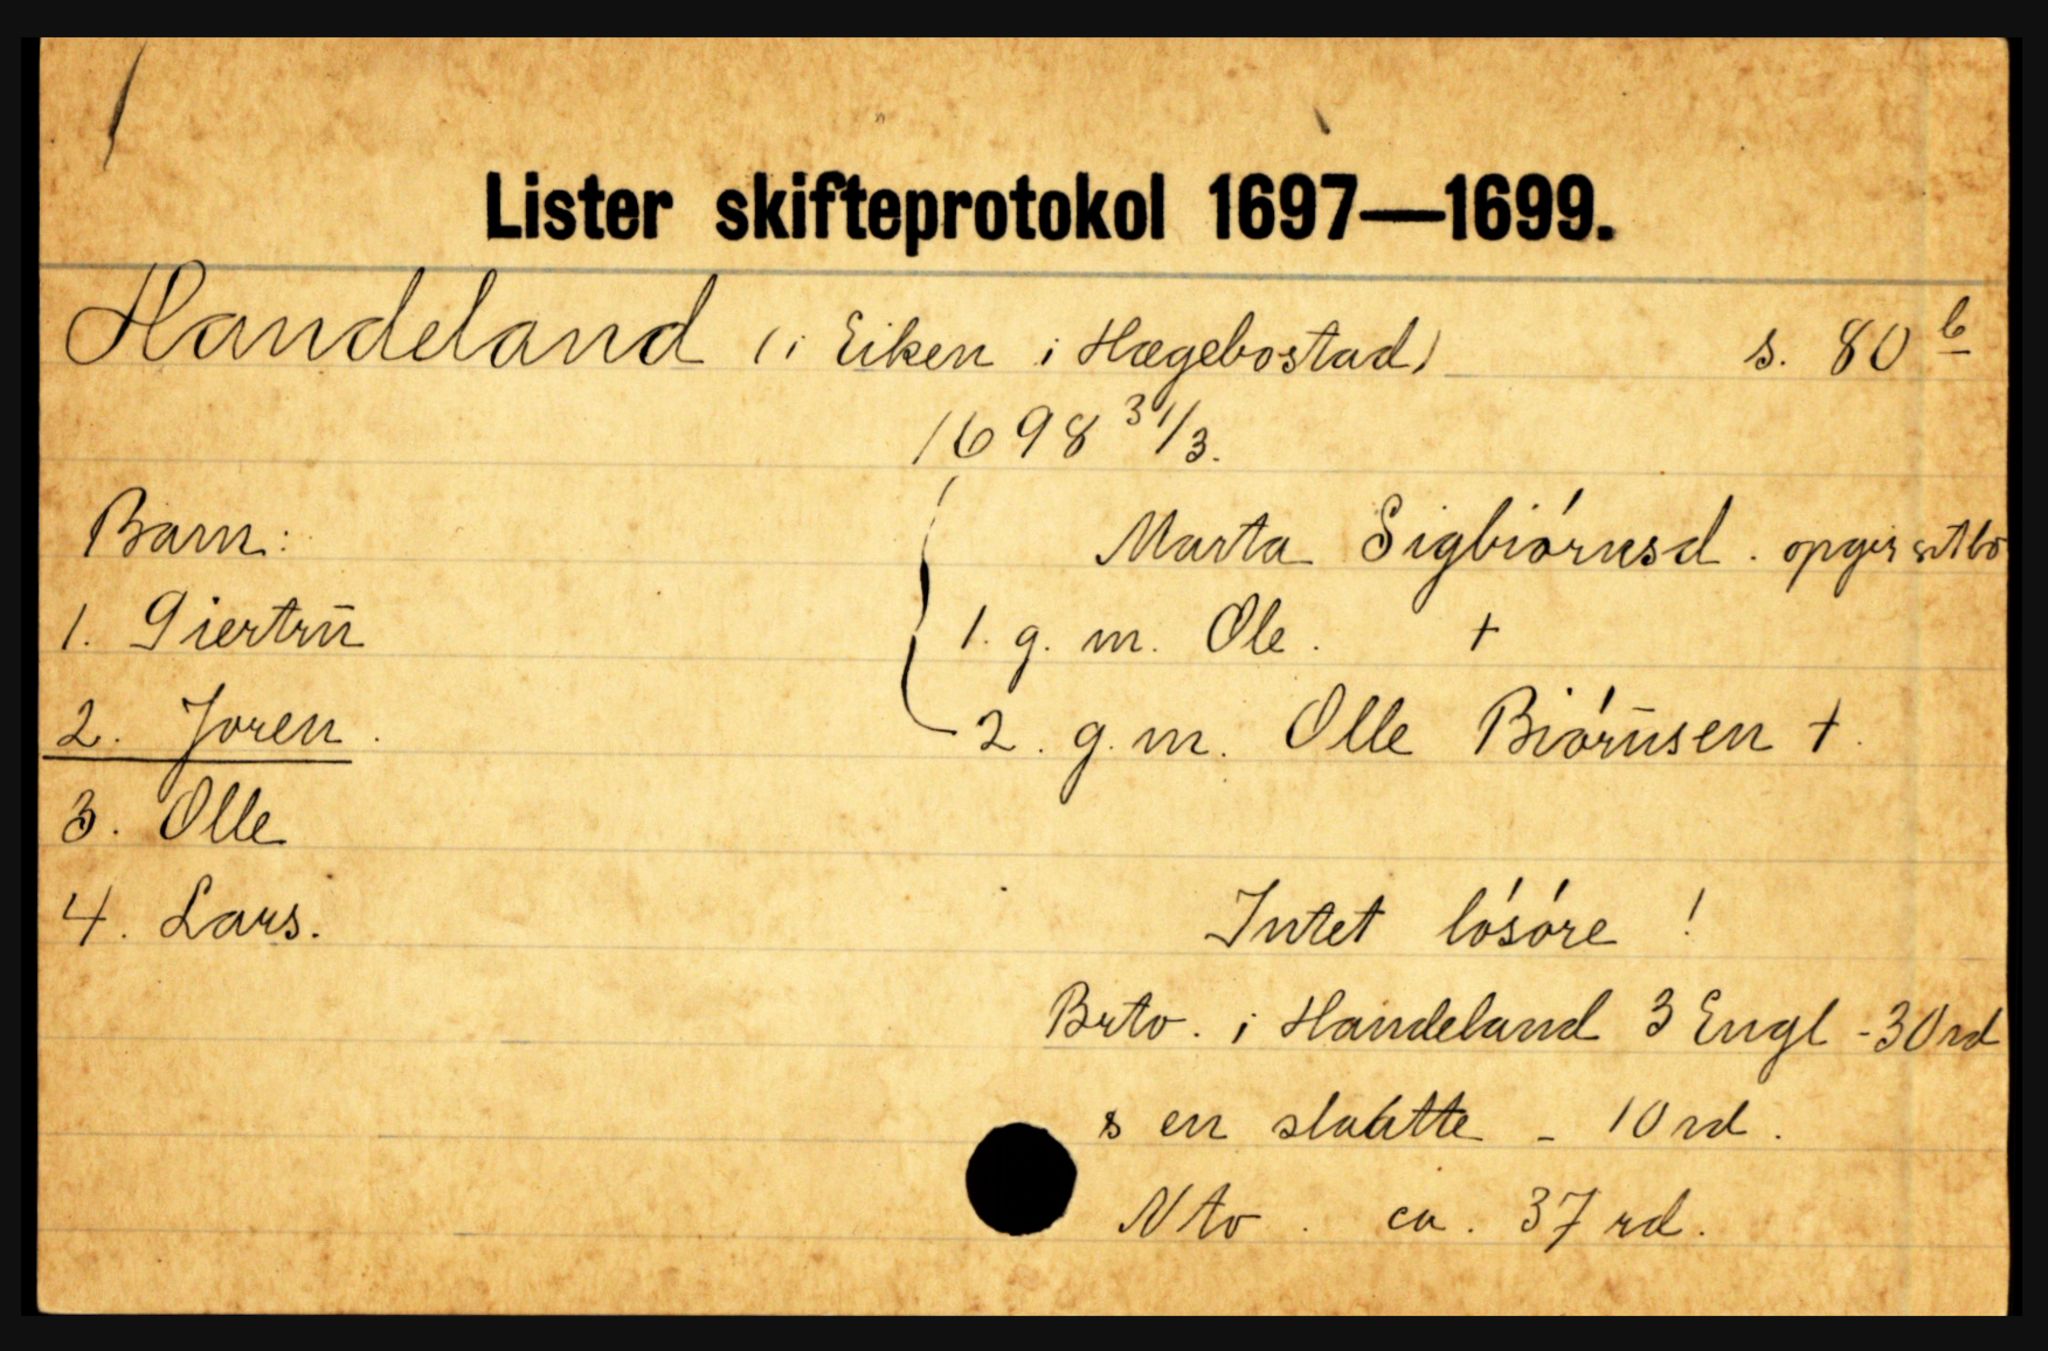 Lister skifteprotokol 1697—1699.
Handeland (i Eiken i Hægebostad) s. 80 b
1698 31/3.
Barn: Marta Sigbiórnsd. opgir sit bo
1. Giertrū 1. g. m. Ole. +
2. Joren. 2. g. m. Olle Biórn̄sen +.
3. Olle
4. Lars. Intet lósóre !
Brto. i Handeland 3 Engl - 30 rd
s en slaatte - 10 rd.
Nto. ca. 37 rd.